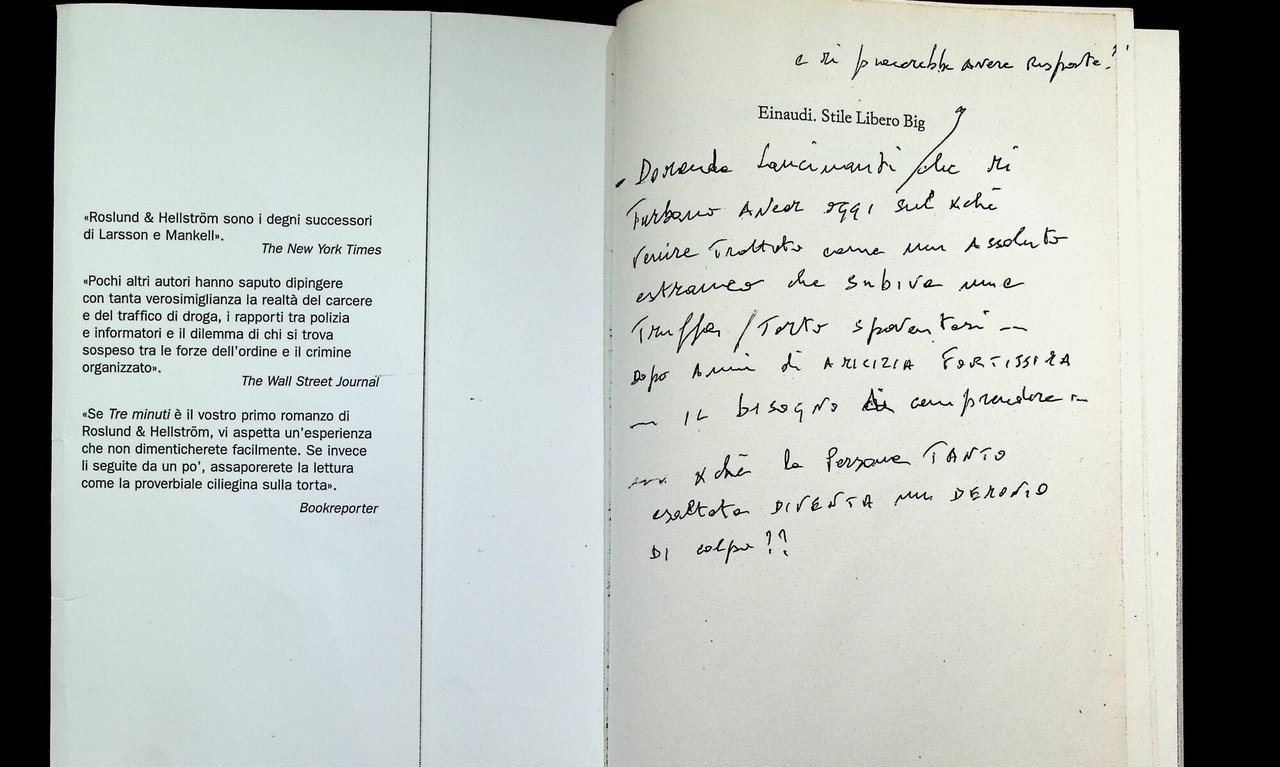 «Roslund & Hellström sono i degni successori
di Larsson e Mankell».
The New York Times
«Pochi altri autori hanno saputo dipingere
con tanta verosimiglianza la realtà del carcere
e del traffico di droga, i rapporti tra polizia
e informatori e il dilemma di chi si trova
sospeso tra le forze dell'ordine e il crimine
organizzato».
The Wall Street Journal
«Se Tre minuti è il vostro primo romanzo di
Roslund & Hellström, vi aspetta un'esperienza
che non dimenticherete facilmente. Se invece
li seguite da un po', assaporerete la lettura
come la proverbiale ciliegina sulla torta».
Bookreporter
e mi piacerebbe avere risposte!!
Einaudi. Stile Libero Big
Domande Lancinanti che mi
Turbano ancor oggi sul xchè
venire Trattato come un assoluto
estraneo che subiva une
Truffa / Torto spaventosi —
Dopo anni di AMICIZIA FORTISSIMA
— IL BISOGNO di comprendere —
xchè la Persona TANTO
esaltata DIVENTA un DEMONIO
DI colpo??